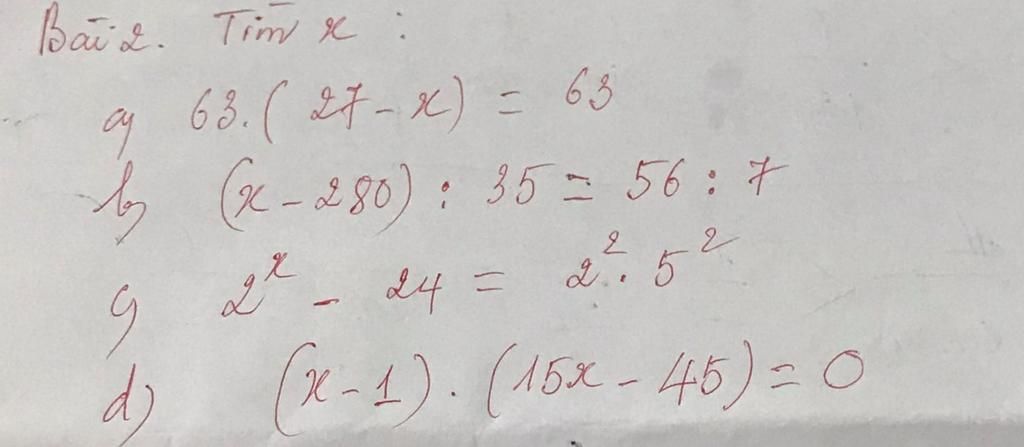 Bài 2. Tìm x :
a) 63.( 27 - x) = 63
b) (x - 280) : 35 = 56 : 7
c) 2ˣ - 24 = 2². 5²
d) (x - 1). (15x - 45) = 0